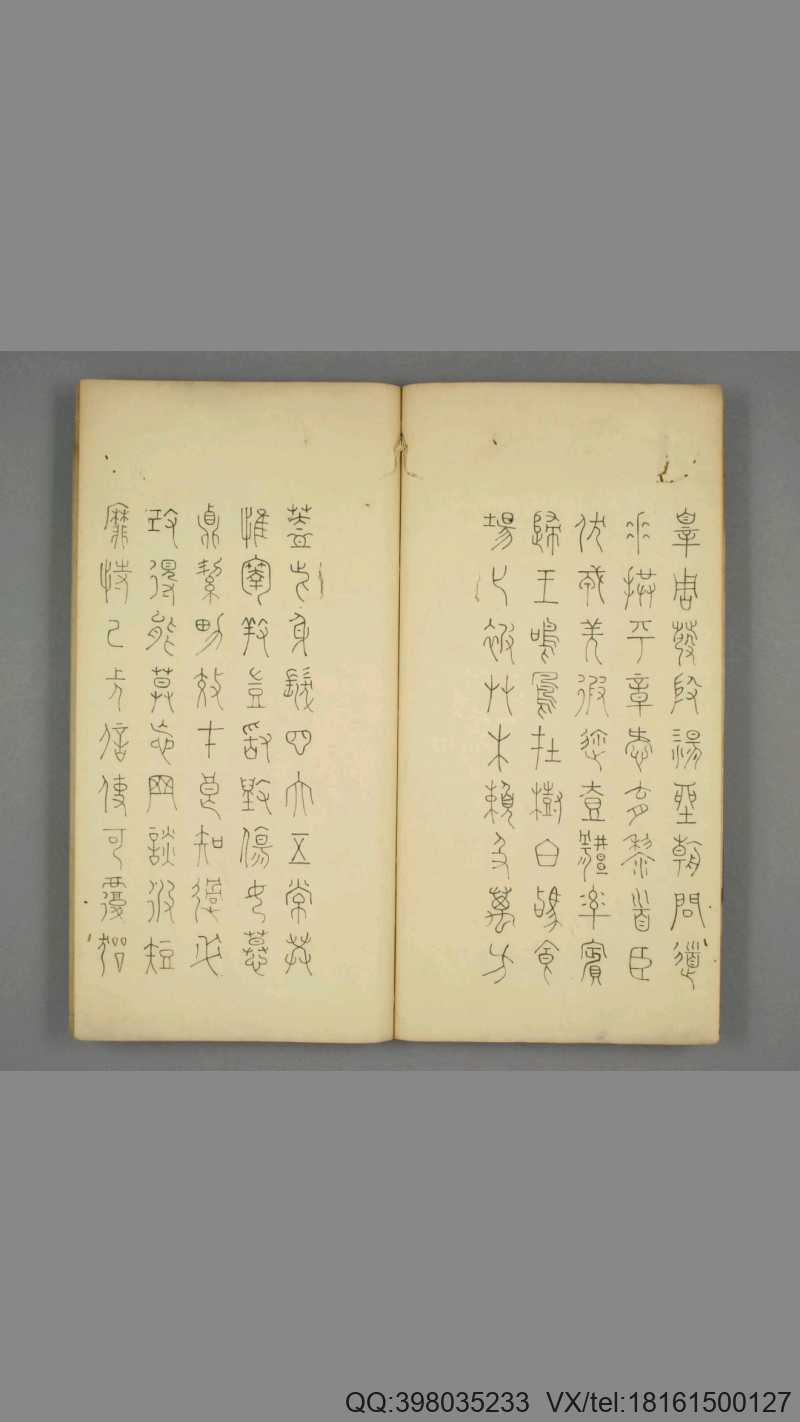 辠周發殷湯坐朝問道
垂拱平章愛育黎首臣
伏戎羌遐邇壹體率賓
歸王鳴鳳在樹白駒食
場化被艸木賴及萬方
蓋此身髮四大五常恭
惟鞠養豈敢毀傷女慕
貞絜男效才良知過必
改得能莫忘罔談彼短
靡恃己長信使可覆器
QQ:398035233 VX/tel:18161500127